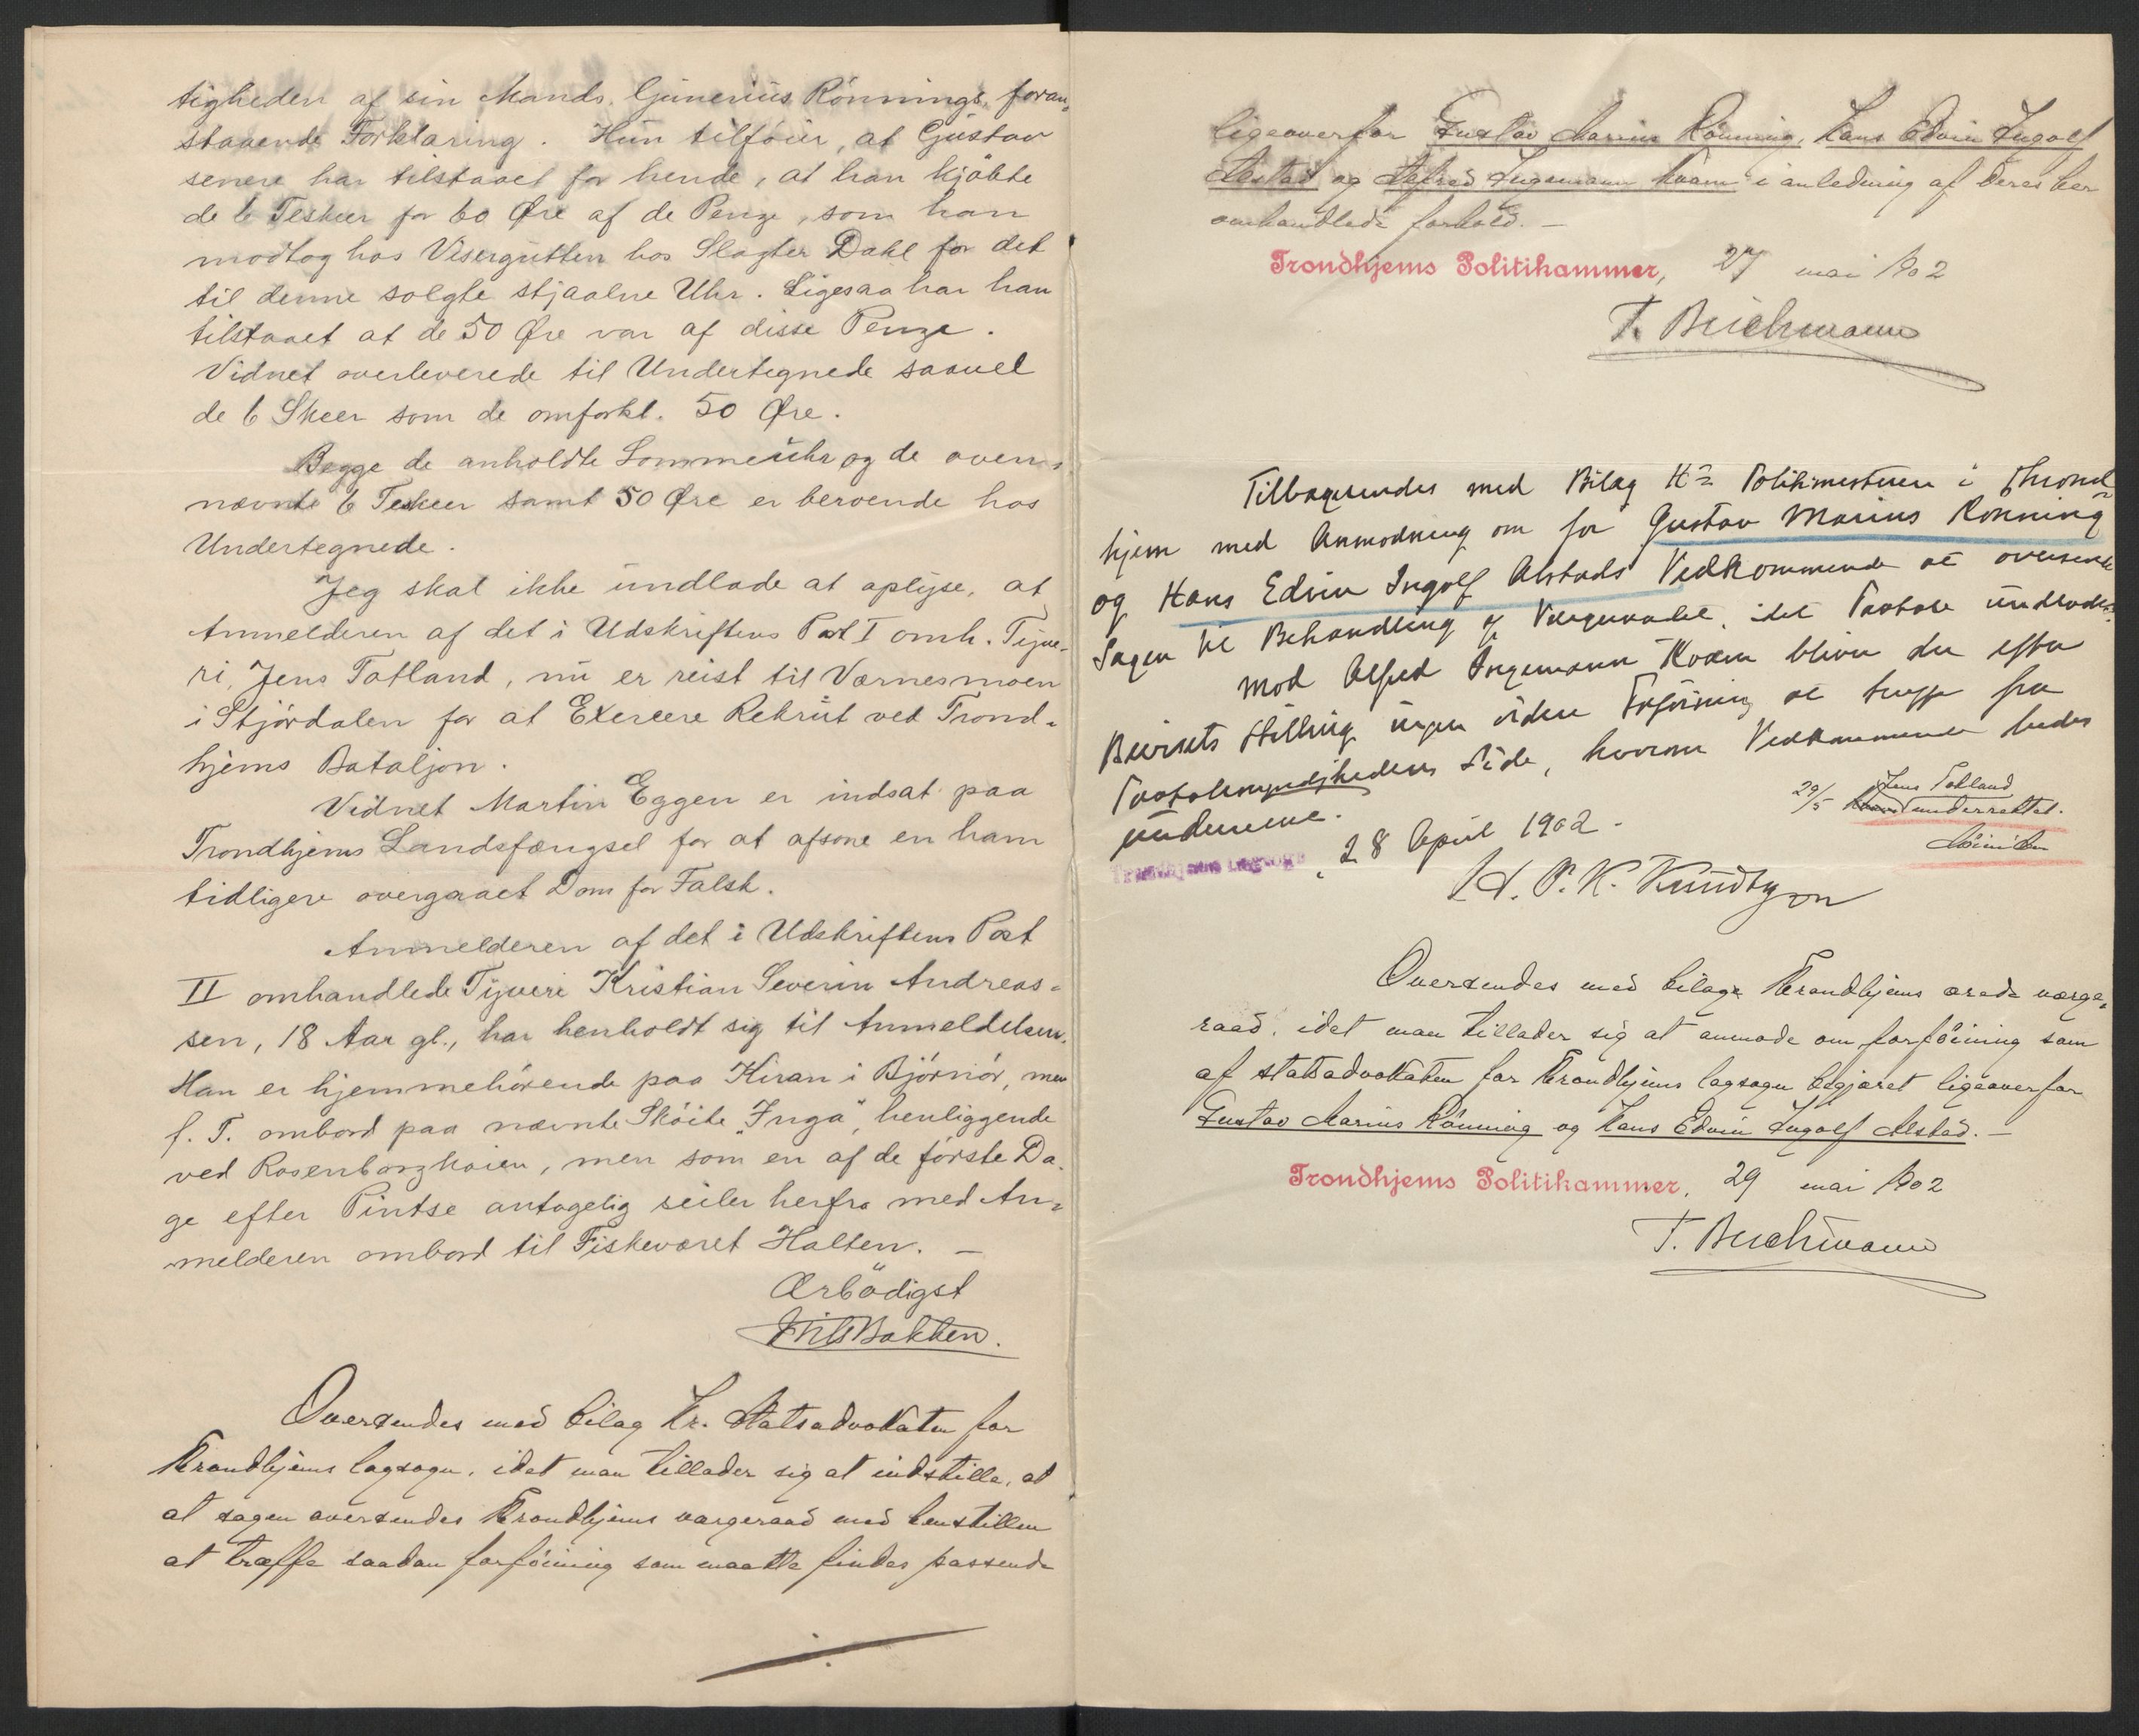 tigheden af sin Mands, Gunerius Rönnings, foran-
staaende Forklaring. Hun tilföier, at Gustav
senere har tilstaaet for hende, at han kjöbte
de 6 Teskeer for 60 Øre af de Penge, som han
modtog hos Visergutten hos Slagter Dahl for det
til denne solgte stjaalne Uhr. Ligesaa har han
tilstaaet at de 50 Øre var af disse Penge.
Vidnet overleverede til Undertegnede saavel
de 6 Skeer som de omforkl. 50 Øre.
Begge de anholdte Lommeuhr og de oven-
nævnte 6 Teskeer samt 50 Øre er beroende hos
Undertegnede.
Jeg skal ikke undlade at oplyse, at
Anmelderen af det i Udskriftens Post I omh. Tyve-
ri, Jens Tatland, nu er reist til Værnesmoen
i Stjördalen for at Exercere Rekrut ved Trond-
hjems Bataljon.
Vidnet Martin Eggen er indsat paa
Trondhjems Landsfængsel for at afsone en ham
tidligere overgaaet Dom for Falsk.
Anmelderen af det i Udskriftens Post
II omhandlede Tyveri Kristian Severin Andreas-
sen, 18 Aar gl., har henholdt sig til Anmeldelsen.
Han er hjemmehörende paa Kiran i Björnör, men
f. T. ombord paa nævnte Sköite "Inga", henliggende
ved Rosenborgkaien, men som en af de förste Da-
ge efter Pintse antagelig seiler herfra med An-
melderen ombord til Fiskeværet Halten. —
Ærbödigst
Nils Bakken.
Oversendes med bilag Hr. Statsadvokaten for
Trondhjems lagsogn, idet man tillader sig at indstille, at
at sagen oversendes Trondhjems værgeraad med henstillen
at træffe saadan forföining som maatte findes passende
ligeoverfor Gustav Marius Rönning, Hans Edvin Ingolf
Alstad og Alfred Ingemann Kvam i anledning af deres her
omhandlede forhold. —
Trondhjems Politikammer, 27 mai 1902
T. Beichmann
Tilbagesendes med Bilag Hr. Politimesteren i Thrond-
hjem med Anmodning om for Gustav Marius Rönning
og Hans Edvin Ingolf Alstads Vedkommende at oversende
Sagen til Behandling af Værgeraadet, idet Paatale undlades.
Mod Alfred Ingemann Kvam bliver der efter
Bevisets Stilling ingen videre Forföining at træffe fra
Paatalemyndighedens Side, hvorom Vedkommende bedes
underrettet.
29/5 Jens Tatland
underrettet.
Trondhjems Lagsogn, 28 April 1902.
H. P. K. Knudtzon
Oversendes med bilage Trondhjems ærede værge-
raad, idet man tillader sig at anmode om forföining som
af statsadvokaten for Trondhjems lagsogn begjæret ligeoverfor
Gustav Marius Rönning og Hans Edvin Ingolf Alstad. —
Trondhjems Politikammer, 29 mai 1902
T. Beichmann